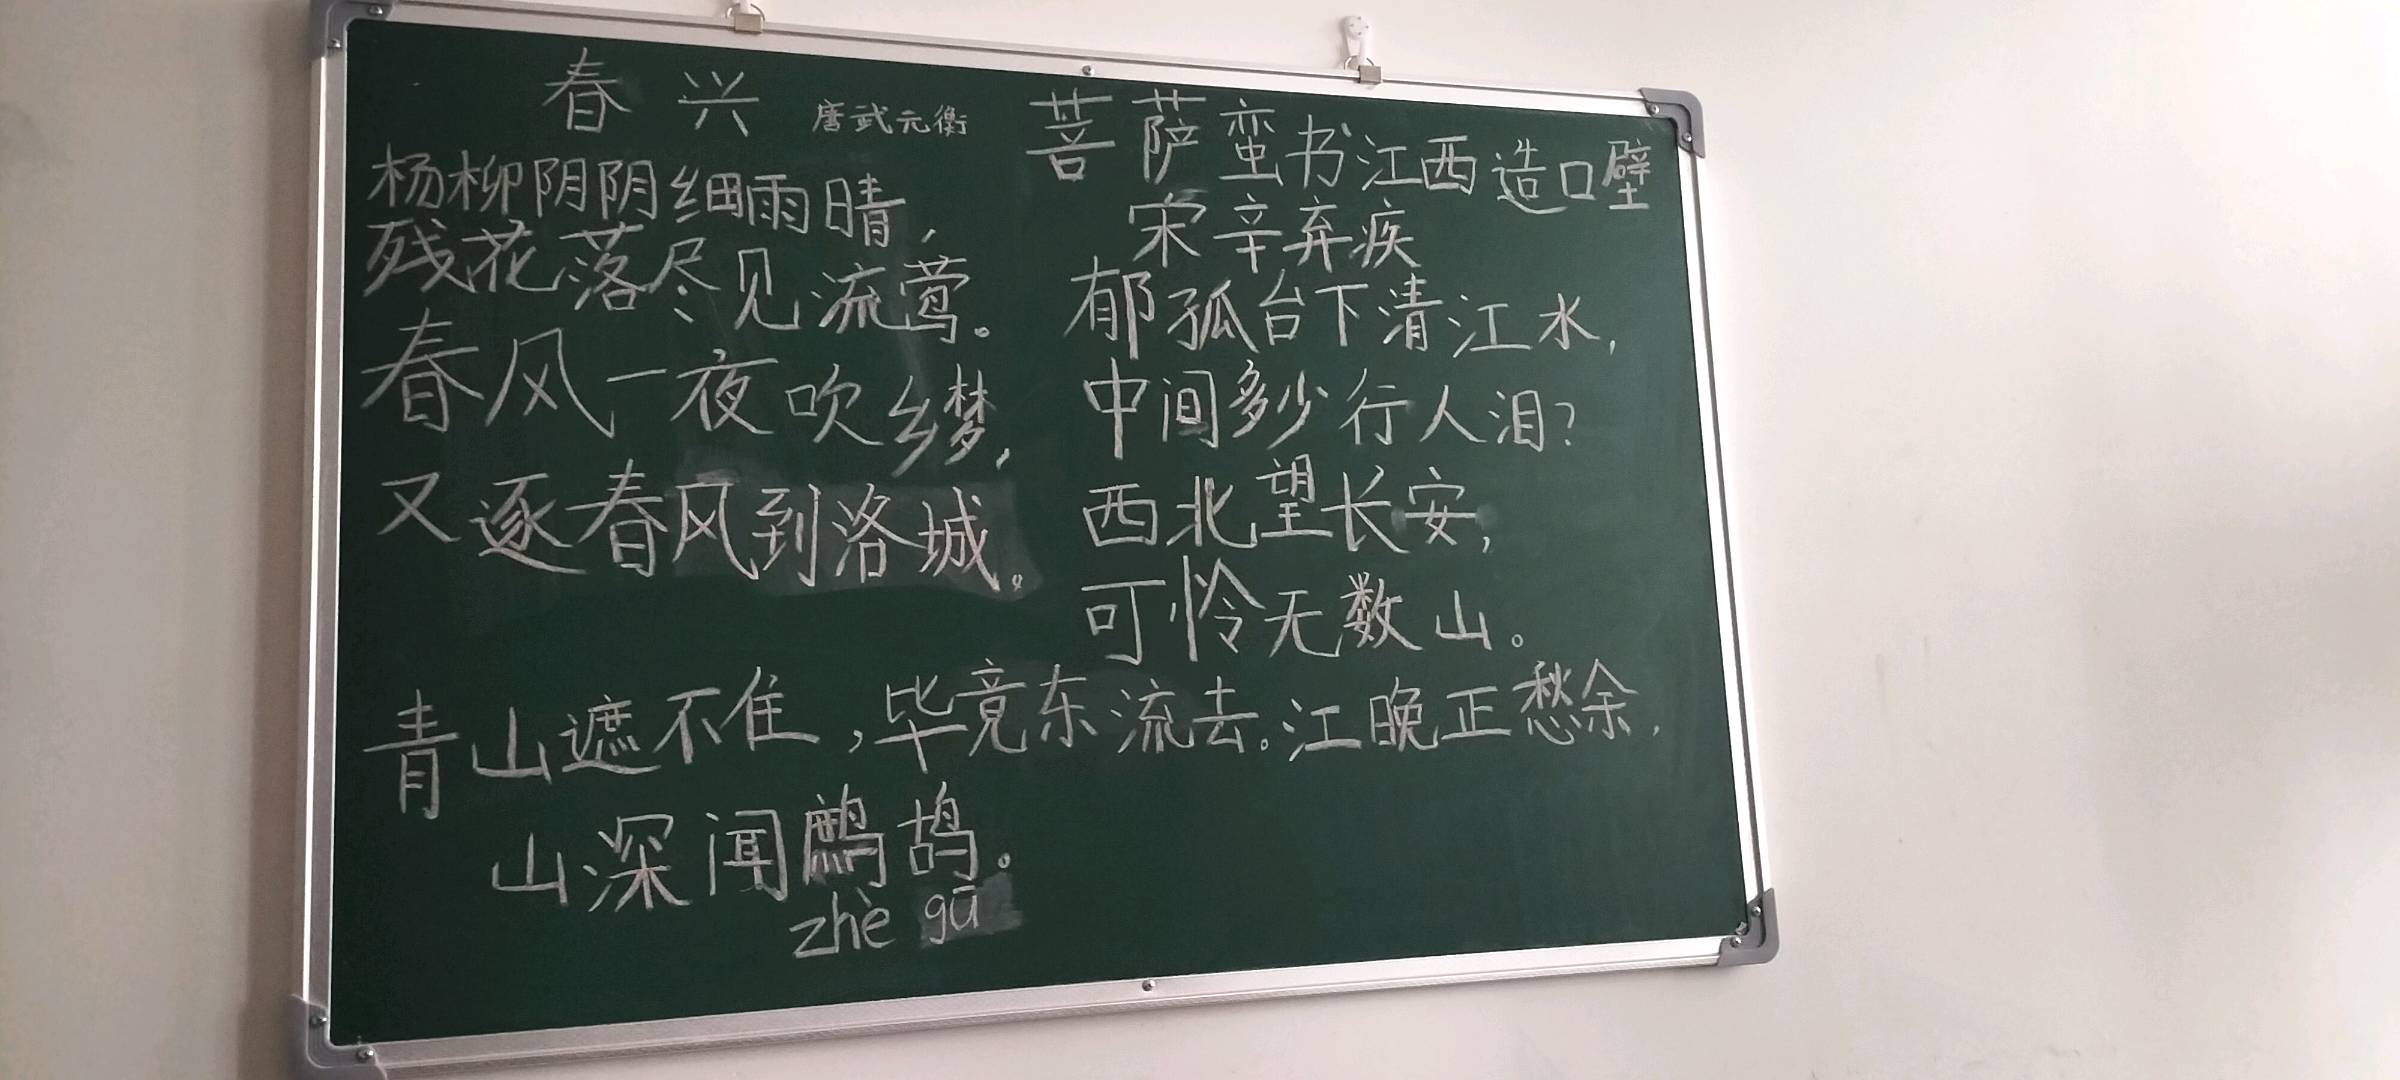 春兴 唐武元衡
杨柳阴阴细雨晴，
残花落尽见流莺。
春风一夜吹乡梦，
又逐春风到洛城。
菩萨蛮书江西造口壁
宋辛弃疾
郁孤台下清江水，
中间多少行人泪？
西北望长安，
可怜无数山。
青山遮不住，毕竟东流去。江晚正愁余，
山深闻鹧鸪。
zhè gū